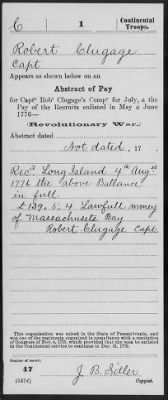 C
1
Continental
Troops.
Robert Clugage
Capt
Appears as shown below on an
Abstract of Pay
for Capt Robt Clugage's Compy for July, & the
Pay of the Recruits enlisted in May & June
1776—
Revolutionary War.
Abstract dated
Not dated, 17 .
Recd Long Island 4th Augst
1776 the above Ballance
in full
£139. 5. 4 Lawfull money
of Massachusets Bay
Robert Clugage Capt
This organization was raised in the State of Pennsylvania, and
was one of the regiments organized in compliance with a resolution
of Congress
which provided that the men be enlisted
in the Continental service to continue to Dec. 31, 1776.
Number of record:
47
(547d)
J. B. Sitler